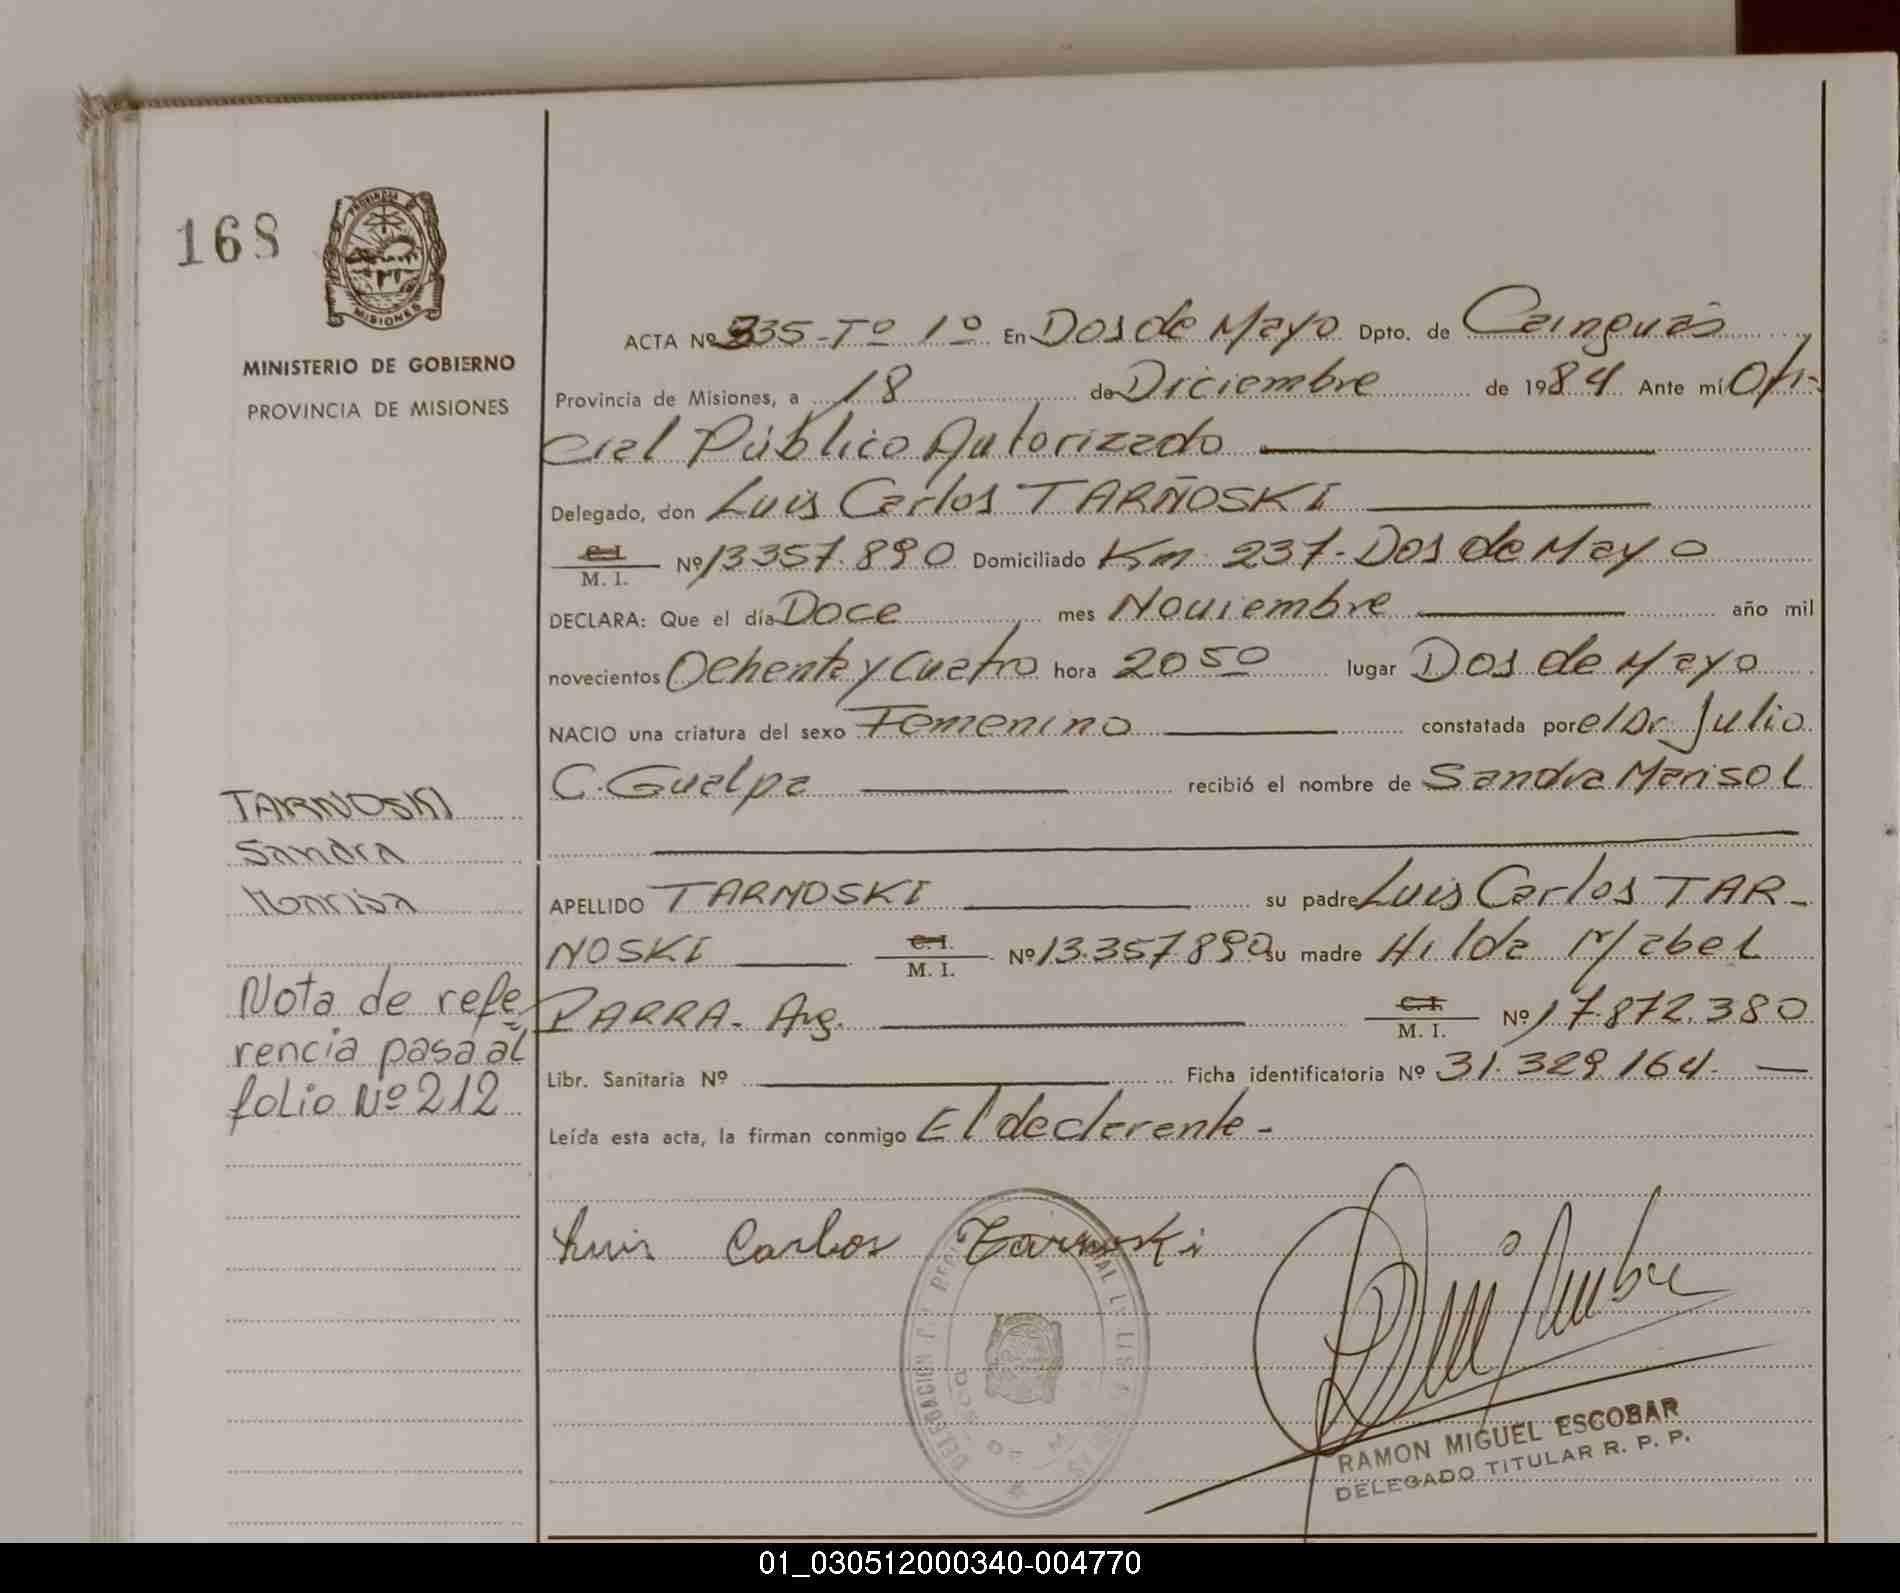 168
PROVINCIA DE
MISIONES
MINISTERIO DE GOBIERNO
PROVINCIA DE MISIONES
ACTA Nº 335-Tº 1º En Dos de Mayo Dpto. de Cainguás
Provincia de Misiones, a 18 de Diciembre de 1984 Ante mí Ofi-
cial Público Autorizado
Delegado, don Luis Carlos TARÑOSKI
C.I.
M. I. Nº 13357.890 Domiciliado Km 237-Dos de Mayo
DECLARA: Que el día Doce mes Noviembre año mil
novecientos Ochenta y Cuatro hora 20 50 lugar Dos de Mayo
NACIO una criatura del sexo Femenino constatada por el Dr. Julio
C. Gualpa recibió el nombre de Sandra Marisol
TARNOSKI
Sandra
APELLIDO TARNOSKI su padre Luis Carlos TAR-
NOSKI C.I.
M. I. Nº 13.357890 su madre Hilda Mabel
PARRA- Arg. C.I.
M. I. Nº 17.872.380
Nota de refe
rencia pasa al
folio Nº 212
Libr. Sanitaria Nº Ficha identificatoria Nº 31.329.164-
Leída esta acta, la firman conmigo El declarente-
Luis Carlos Tarnoski
DELEGACION
RAMON MIGUEL ESCOBAR
DELEGADO TITULAR R. P. P.
01_030512000340-004770